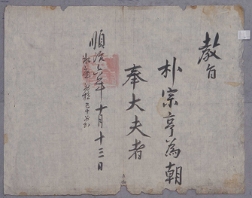 教旨
朴宗亨為朝
奉大夫者
順治六年十月十三日